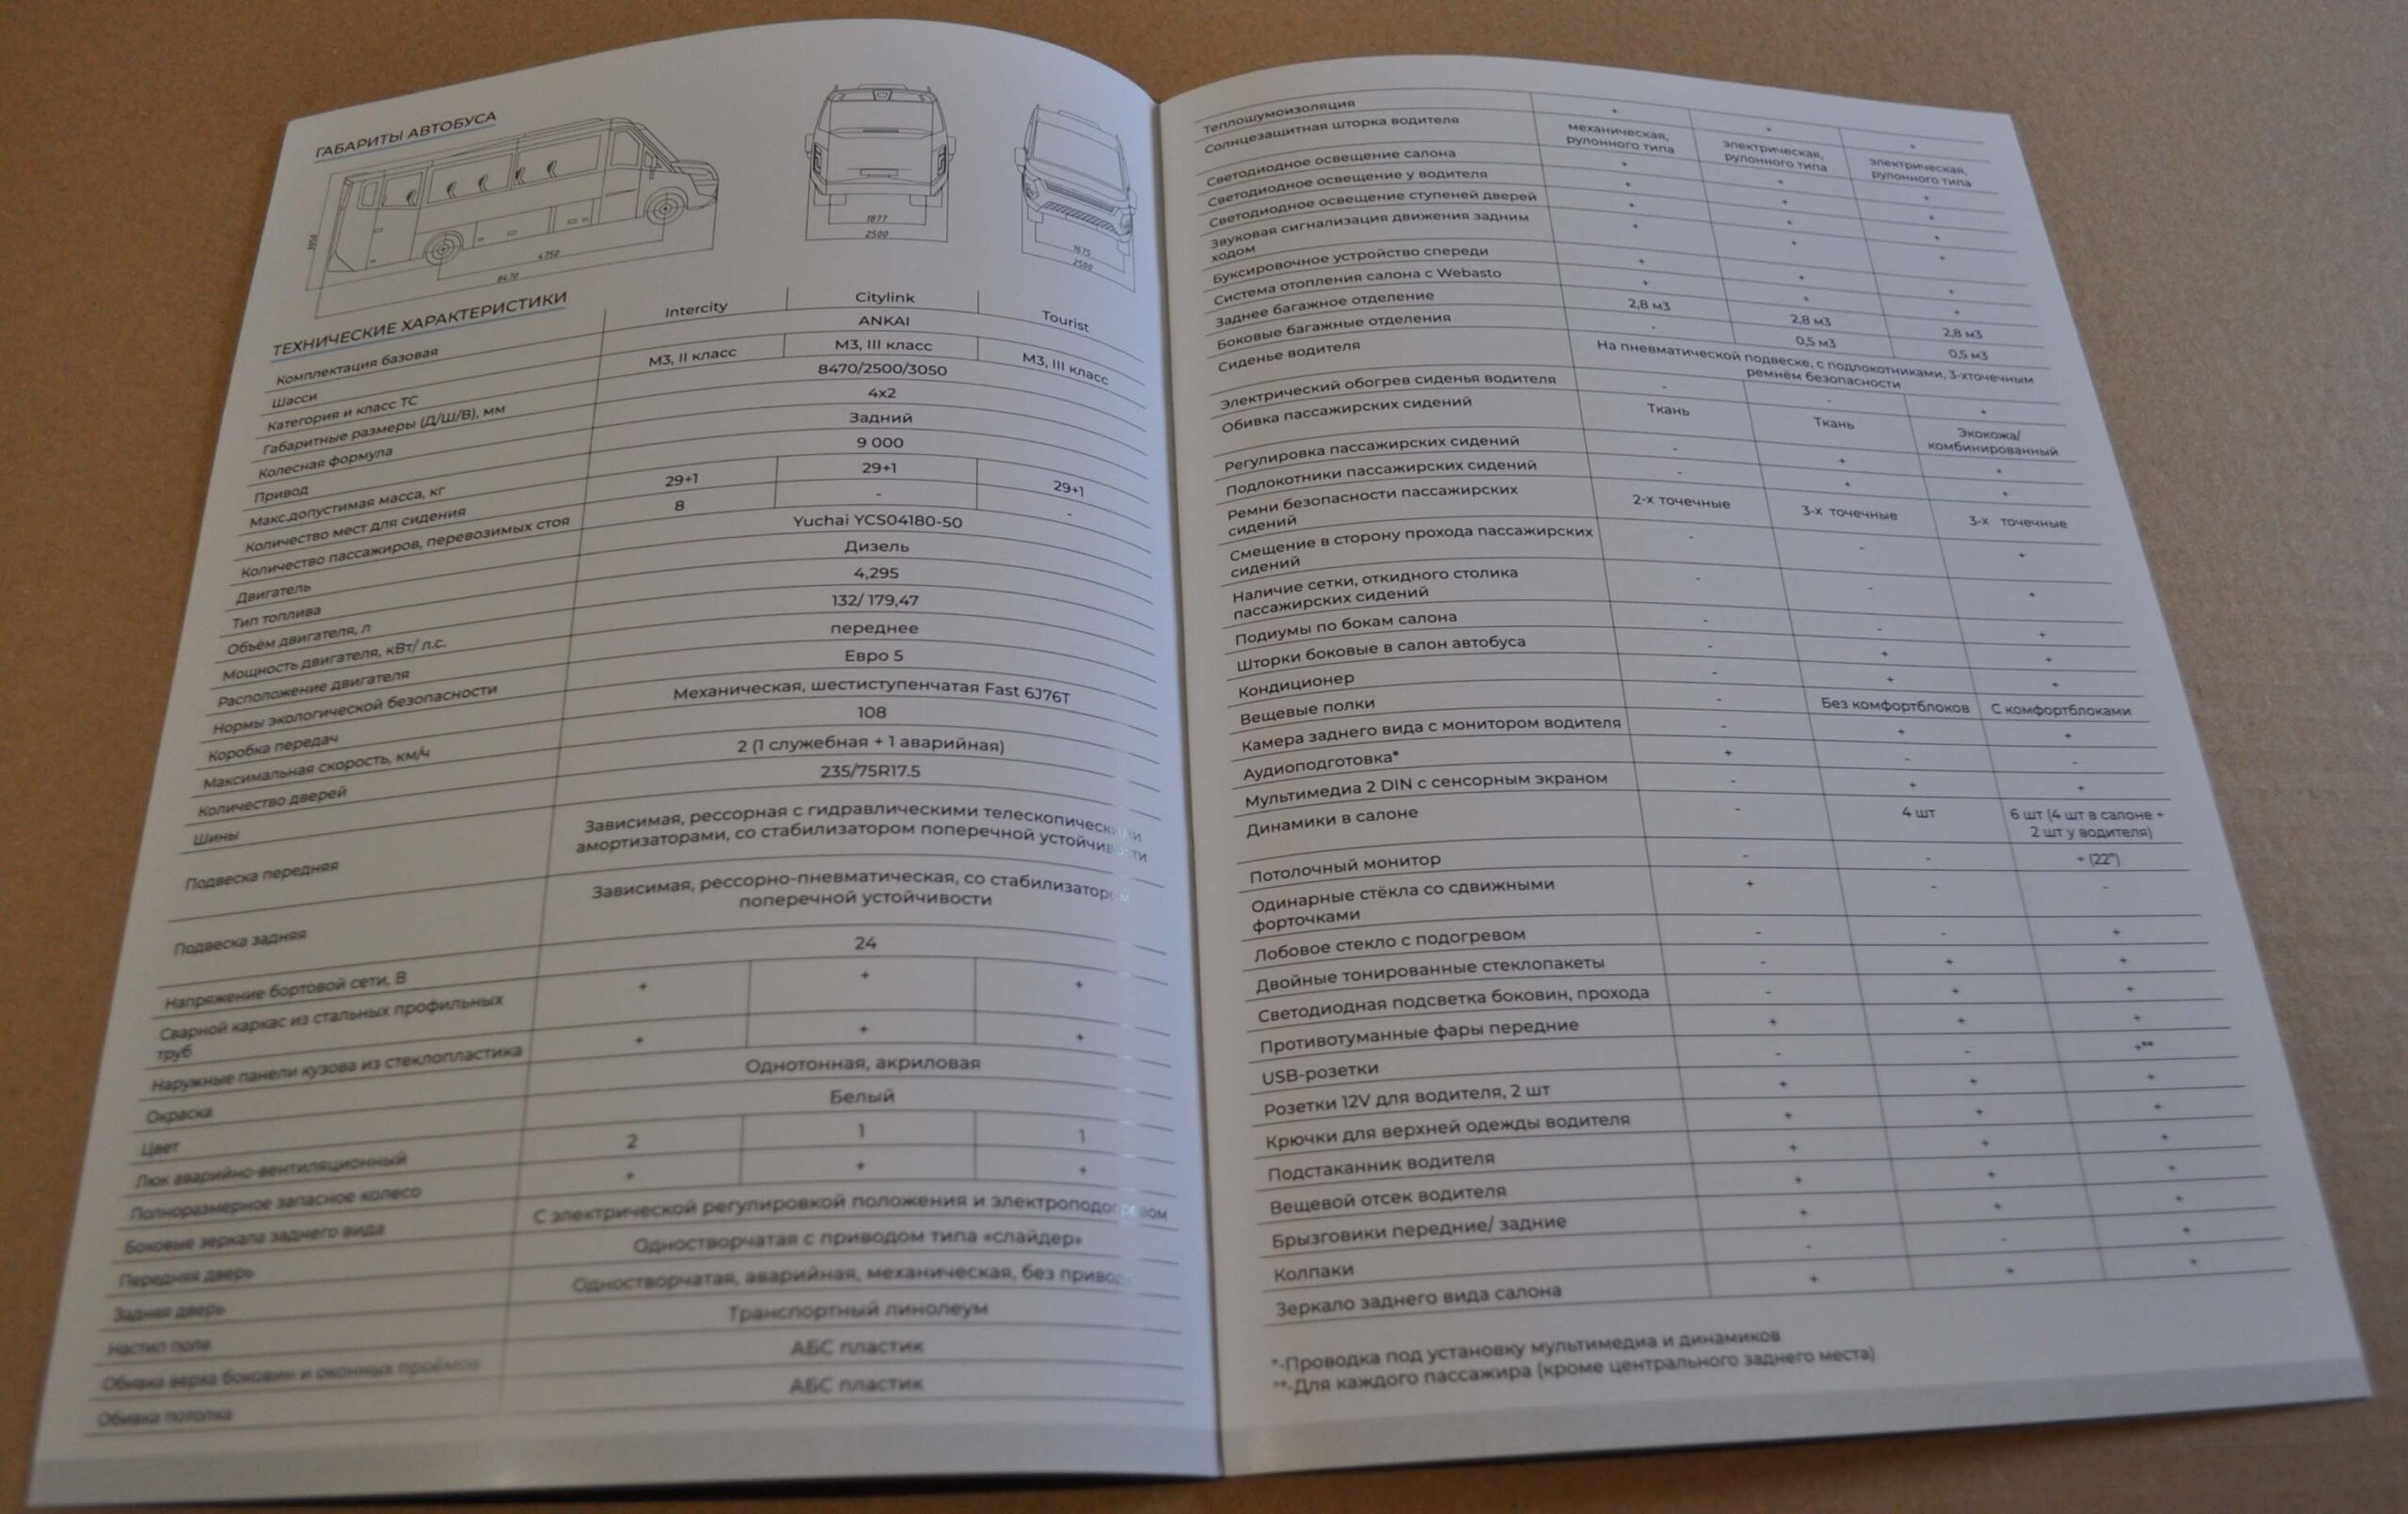 ГАБАРИТЫ АВТОБУСА
3050
4750
8470
1877
2500
1675
2500
ТЕХНИЧЕСКИЕ ХАРАКТЕРИСТИКИ
Комплектация базовая Intercity Citylink Tourist
Шасси ANKAI
Категория и класс ТС М3, II класс М3, III класс М3, III класс
Габаритные размеры (Д/Ш/В), мм 8470/2500/3050
Колесная формула 4х2
Привод Задний
Макс.допустимая масса, кг 9 000
Количество мест для сидения 29+1 29+1 29+1
Количество пассажиров, перевозимых стоя 8 - -
Двигатель Yuchai YCS04180-50
Тип топлива Дизель
Объём двигателя, л 4,295
Мощность двигателя, кВт/ л.с. 132/ 179,47
Расположение двигателя переднее
Нормы экологической безопасности Евро 5
Коробка передач Механическая, шестиступенчатая Fast 6J76T
Максимальная скорость, км/ч 108
Количество дверей 2 (1 служебная + 1 аварийная)
Шины 235/75R17.5
Подвеска передняя Зависимая, рессорная с гидравлическими телескопическими
амортизаторами, со стабилизатором поперечной устойчивости
Подвеска задняя Зависимая, рессорно-пневматическая, со стабилизатором
поперечной устойчивости
Напряжение бортовой сети, В 24
Сварной каркас из стальных профильных
труб + + +
Наружные панели кузова из стеклопластика + + +
Окраска Однотонная, акриловая
Цвет Белый
Люк аварийно-вентиляционный 2 1 1
Полноразмерное запасное колесо + + +
Боковые зеркала заднего вида С электрической регулировкой положения и электроподогревом
Передняя дверь Одностворчатая с приводом типа «слайдер»
Задняя дверь Одностворчатая, аварийная, механическая, без привода
Настил пола Транспортный линолеум
Обивка верха боковин и оконных проёмов АБС пластик
Обивка потолка АБС пластик
Теплошумоизоляция + + +
Солнцезащитная шторка водителя механическая, рулонного типа электрическая, рулонного типа электрическая, рулонного типа
Светодиодное освещение салона + + +
Светодиодное освещение у водителя + + +
Светодиодное освещение ступеней дверей + + +
Звуковая сигнализация движения задним
ходом + + +
Буксировочное устройство спереди + + +
Система отопления салона с Webasto + + +
Заднее багажное отделение 2,8 м3 2,8 м3 2,8 м3
Боковые багажные отделения - 0,5 м3 0,5 м3
Сиденье водителя На пневматической подвеске, с подлокотниками, 3-хточечным
ремнём безопасности
Электрический обогрев сиденья водителя - - +
Обивка пассажирских сидений Ткань Ткань Экокожа/ комбинированный
Регулировка пассажирских сидений - + +
Подлокотники пассажирских сидений - + +
Ремни безопасности пассажирских
сидений 2-х точечные 3-х точечные 3-х точечные
Смещение в сторону прохода пассажирских
сидений - - +
Наличие сетки, откидного столика
пассажирских сидений - - +
Подиумы по бокам салона - - +
Шторки боковые в салон автобуса - + +
Кондиционер - + +
Вещевые полки - Без комфортблоков С комфортблоками
Камера заднего вида с монитором водителя - + +
Аудиоподготовка* + - -
Мультимедиа 2 DIN с сенсорным экраном - + +
Динамики в салоне - 4 шт 6 шт (4 шт в салоне +
2 шт у водителя)
Потолочный монитор - - + (22")
Одинарные стёкла со сдвижными
форточками + - -
Лобовое стекло с подогревом - - +
Двойные тонированные стеклопакеты - + +
Светодиодная подсветка боковин, прохода - + +
Противотуманные фары передние + + +
USB-розетки - - +**
Розетки 12V для водителя, 2 шт + + +
Крючки для верхней одежды водителя + + +
Подстаканник водителя + + +
Вещевой отсек водителя + + +
Брызговики передние/ задние + + +
Колпаки - - +
Зеркало заднего вида салона + + +
*-Проводка под установку мультимедиа и динамиков
**-Для каждого пассажира (кроме центрального заднего места)